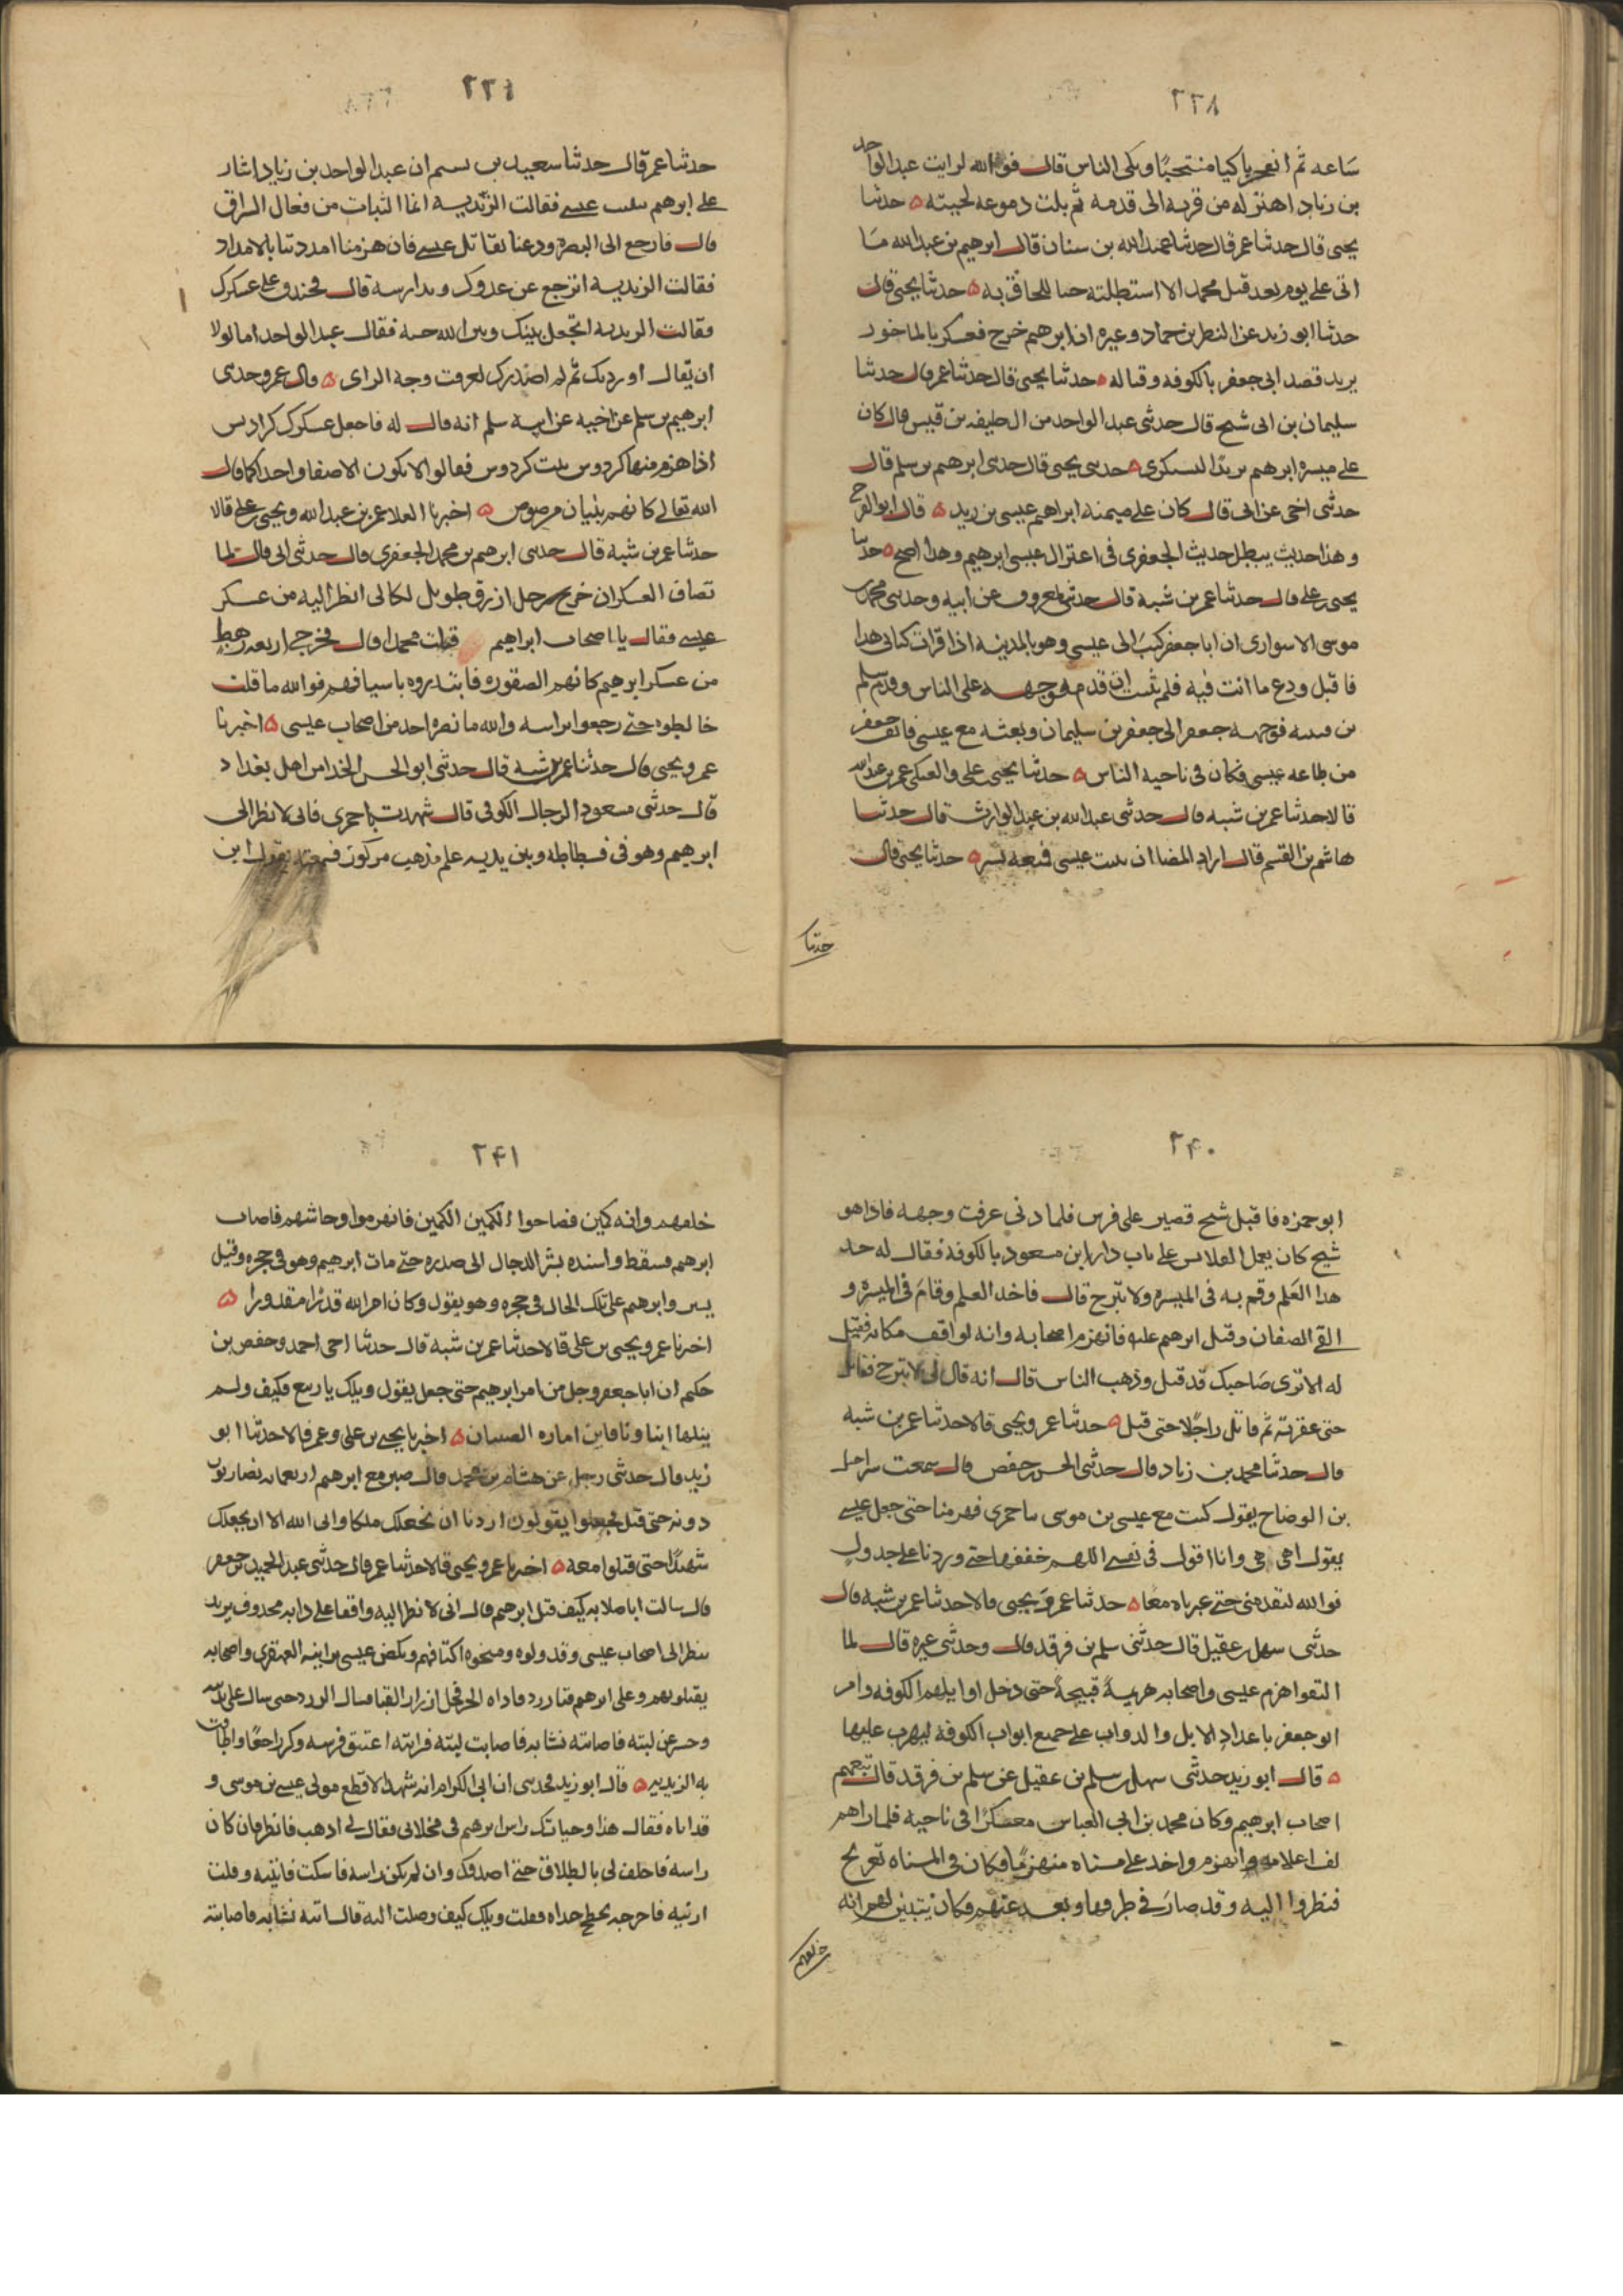 ٢٣٨
ساعه ثم انفجر باكيا منتحبًا وبكى الناس قال فوالله لرايت عبدالواحد
بن زياد اهتز له من قرنه الى قدمه ثم بلت دموعه لحيته ه حدثنا
يحيى قال حدثنا عمر قال حدثنا عبدالله بن سنان قال ابرهيم بن عبدالله مَا
اتى على يوم بعد قتل محمد الا استطلته حبا للحاق به ه حدثنا يحيى قال
حدثنا ابو زيد عن النضر بن حماد وغيره ان ابرهيم خرج فعسكر بالماخور
يريد قصد ابى جعفر بالكوفه وقتاله ه حدثنا يحيى قال حدثنا عمر قال حدثنا
سليمان بن ابى شيخ قال حدثنى عبد الواحد من ال خليفه بن قيس قال كان
على ميسره ابرهيم برد اليشكرى ه حدثنى يحيى قال حدثنى ابرهيم بن سلم قال
حدثنى اخى عن ابى قال كان على ميمنه ابراهيم عيسى بن زيد ه قال ابو الفرج
وهذا حديث يبطل حديث الجعفرى فى اعتزال عيسى ابرهيم وهذا اصح ه حدثنا
يحيى بن على قال حدثنا عمر بن شبه قال حدثنى معروف عن ابيه وحدثنى محمد بن
موسى الاسوارى ان ابا جعفر كتبَ الى عيسى وهو بالمدينه اذا قرات كتابى هذا
فاقبل ودع ما انت فيه فلم ينشب ان قدم فوجهه على الناس وقدم سلم
بن قتيبه فوجهه جعفر الى جعفر بن سليمان وبعثه مع عيسى فانف جعفر
من طاعه عيسى فكان فى ناحيه الناس ه حدثنا يحيى على والعتكى عمر بن عبدالله
قالا حدثنا عمر بن شبه قال حدثنى عبدالله بن عبدالوارث قال حدثنا
هاشم بن القسم قال اراد المضا ان يبيت عيسى فمنعه بشر ه حدثنا يحيى قال
حدثنا
٢٣٩
حدثنا عمر قال حدثنا سعيد بن ان عبدالواحد بن زياد اشار
على ابرهيم عيسى فقالت الزيديه انما البيات من فعال السراق
قال فارجع الى البصره ودعنا نقاتل عيسى فان هزمنا امددتنا بالامداد
فقالت الزيديه اترجع عن عدوك وقد رايته قال فخندق على عسكرك
فقالت الزيديه اتجعل بينك وبين الله جنه فقال عبدالواحد اما لولا
ان يقال اوردك ثم لم اصدرك لعرفت وجه الراى ه قال عمر وحدثنى
ابرهيم بن سلم عن اخيه عن ابيه سلم انه قال له فاجعل عسكرك كراديس
اذا هزم منها كردوس ثبت كردوس فقالوا لا نكون الا صفا واحدا كما قال
الله تعالى كانهم بنيان مرصوص ه اخبرنا العلا عمر بن عبدالله ويحيى بن على قالا
حدثنا عمر بن شبه قال حدثنى ابرهيم بن محمد الجعفرى قال حدثنى ابى قال لما
تصاف العسكران خرج رجل ازرق طويل لكانى انظر اليه من عسكر
عيسى فقال يا اصحاب ابراهيم قتلت محمدا قال فخرج اربعه رهط
من عسكر ابرهيم كانهم الصقوره فابتدروه باسيافهم فوالله ما قلت
خالطوه حتى رجعوا براسه والله ما نصره احد من اصحاب عيسى ه اخبرنا
عمر ويحيى قال حدثنا عمر بن شبه قال حدثنى ابو الحسن الحذا من اهل بغداد
قال حدثنى مسعود الرحال الكوفى قال شهدت باحمرى فانى لانظر الى
ابرهيم وهو فى فسطاطه وبين يديه علم مذهب مركوز فسمعته يقول اين
٢٤٠
ابو حمزه فاقبل شيخ قصير على فرس فلما دنى عرفت وجهه فاذا هو
شيخ كان يعمل القلانس على باب دار ابن مسعود بالكوفه فقال له خذ
هذا العَلم وقم به فى الميسره ولا تبرح قال فاخذ العلم وقامَ فى الميسره و
التقى الصفان وقتل ابرهيم عليه فانهزم اصحابه وانه لواقف مكانه فقيل
له الا ترى صَاحبك قد قتل وذهب الناس قال انه قال لى لا تبرح فقاتل
حتى عقر به ثم قاتل راجلًا حتى قتل ه حدثنا عمر ويحيى قالا حدثنا عمر بن شبه
قال حدثنا محمد بن زياد قال حدثنى الحسن بن حفص قال سمعت شراحيل
بن الوضاح يقول كنت مع عيسى بن موسى باحمرى فهزمنا حتى جعل عيسى
يقول اهى هى وانا اقول فى نفسى اللهم حققها حتى وردنا على جدول
فوالله لتقدمنى حتى عبرناه معًا ه حدثنا عمر وَيحيى قالا حدثنا عمر بن شبه قال
حدثنى سهل بن عقيل قال حدثنى سلم بن فرقد قال وحدثنى غيره قال لما
التقوا هزم عيسى واصحابه هزيمةً قبيحةً حتى دخل اوايلهم الكوفه وامر
ابو جعفر باعداد الابل والدواب على جميع ابواب الكوفه ليهرب عليها
ه قال ابو زيد حدثنى سهل بن سلم بن عقيل عن سلم بن فرقد قال تبعهم
اصحاب ابرهيم وكان محمد بن ابى العباس معسكرًا فى ناحيه فلما راهم
لف اعلامه وانهزم واخذ على مسناه منهزمًا فكان فى المسناه تعريج
فنظروا اليه وقد صارَ فى طرفها وبعد عنهم فكان يتبين لهم انه
خلفهم
٢٤١
خلفهم وانه كمين فصاحوا الكمين الكمين فانهزموا وجا سهم فاصاب
ابرهيم فسقط واسنده بشر الرحال الى صدره حتى مات ابرهيم وهو فى حجره وقتل
بشر وابرهيم على تلك الحال فى حجره وهو يقول وكان امر الله قدرًا مقدورا ه
اخبرنا عمر ويحيى بن على قالا حدثنا عمر بن شبه قال حدثنا اخى احمد وحفص بن
حكيم ان ابا جعفر وجل من امر ابرهيم حتى جعل يقول ويلك يا ربيع فكيف ولم
ينلها ابناونا فاين اماره الصبيان ه اخبرنا يحيى بن على وعمر قالا حدثنا ابو
زيد قال حدثنى رجل عن هشام بن محمد قال صبر مع ابرهيم اربعمايه يضاربون
دونه حتى قتل فجعلوا يقولون اردنا ان نجعلك ملكا وابى الله الا ان يجعلك
شهيدًا حتى قتلوا معه ه اخبرنا عمر ويحيى قالا حدثنا عمر قال حدثنى عبد الحميد بن جعفر
قال سالت ابا صلابه كيف قتل ابرهيم قال انى لانظر اليه واقفا على دابه محذوف يريد
ينظر الى اصحاب عيسى وقد ولوه ومنحوه اكتافهم ونكص عيسى برايته القهقرى واصحابه
يقتلونهم وعلى ابرهيم قبا زرد فاذاه الحر فحل ازرار القبا فسال الزرد حتى سال على يديه
وحسر عن لبته فاصابته نشابه فاصابت لبته فرايته اعتنق فرسه وكر راجعًا واطافت
به الزيديه ه قال ابو زيد فحدثنى ابن ابى الكرام انه شهد الاقطع مولى عيسى بن موسى و
قد اتاه فقال هذا وحياتك راس ابرهيم فى مخلاتى فقال لى اذهب فانظر فان كان
راسه فاحلف لى بالطلاق حتى اصدقك وان لم يكن راسه فاسكت فاتيته وقلت
ارنيه فاخرجه خداه فقلت ويلك كيف وصلت اليه قال اتته نشابه فاصابته